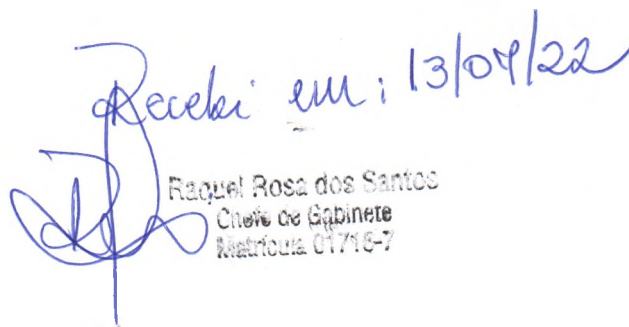 Recebi em: 13/07/22
Raquel Rosa dos Santos
Chefe de Gabinete
Matrícula 01716-7